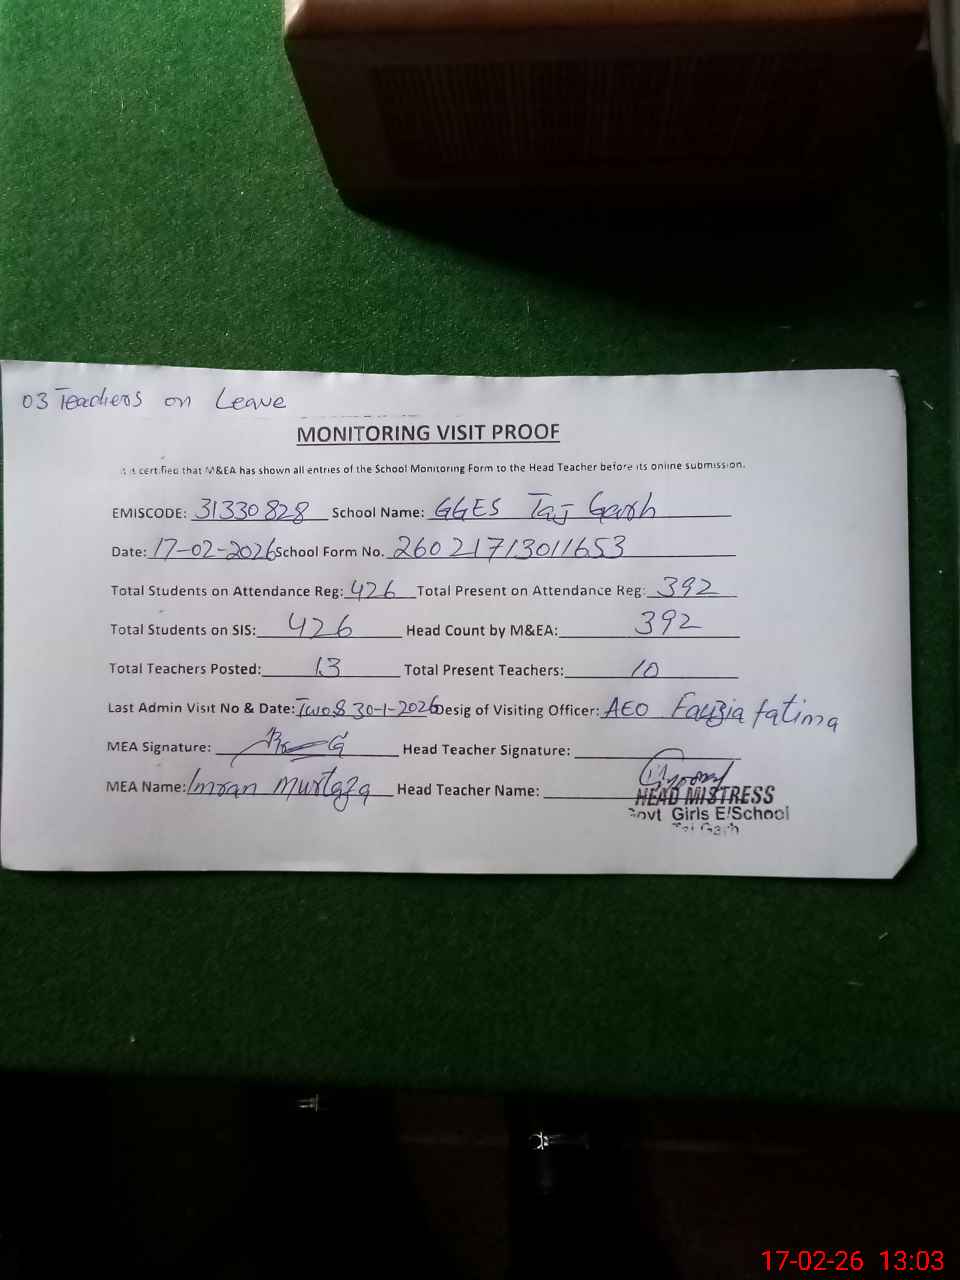 03 Teachers on Leave
MONITORING VISIT PROOF
It is certified that M&EA has shown all entries of the School Monitoring Form to the Head Teacher before its online submission.
EMISCODE: 31330828 School Name: GGES Taj Garh
Date: 17-02-2026 School Form No. 26021713011653
Total Students on Attendance Reg: 426 Total Present on Attendance Reg: 392
Total Students on SIS: 426 Head Count by M&EA: 392
Total Teachers Posted: 13 Total Present Teachers: 10
Last Admin Visit No & Date: Two & 30-1-2026 Desig of Visiting Officer: AEO Fauzia fatima
MEA Signature: Head Teacher Signature:
MEA Name: Imran Murtaza Head Teacher Name:
HEAD MISTRESS
Govt Girls E/School
Taj Garh
17-02-26 13:03